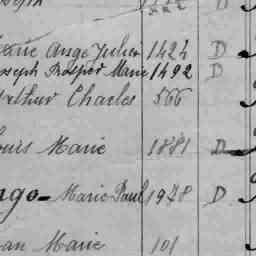 Marie Ange Julien 1424 D
Joseph Prosper Marie 1492 D
Arthur Charles 566
Louis Marie 1881 D
ngo - Marie Paul 1978 D
Jean Marie 101